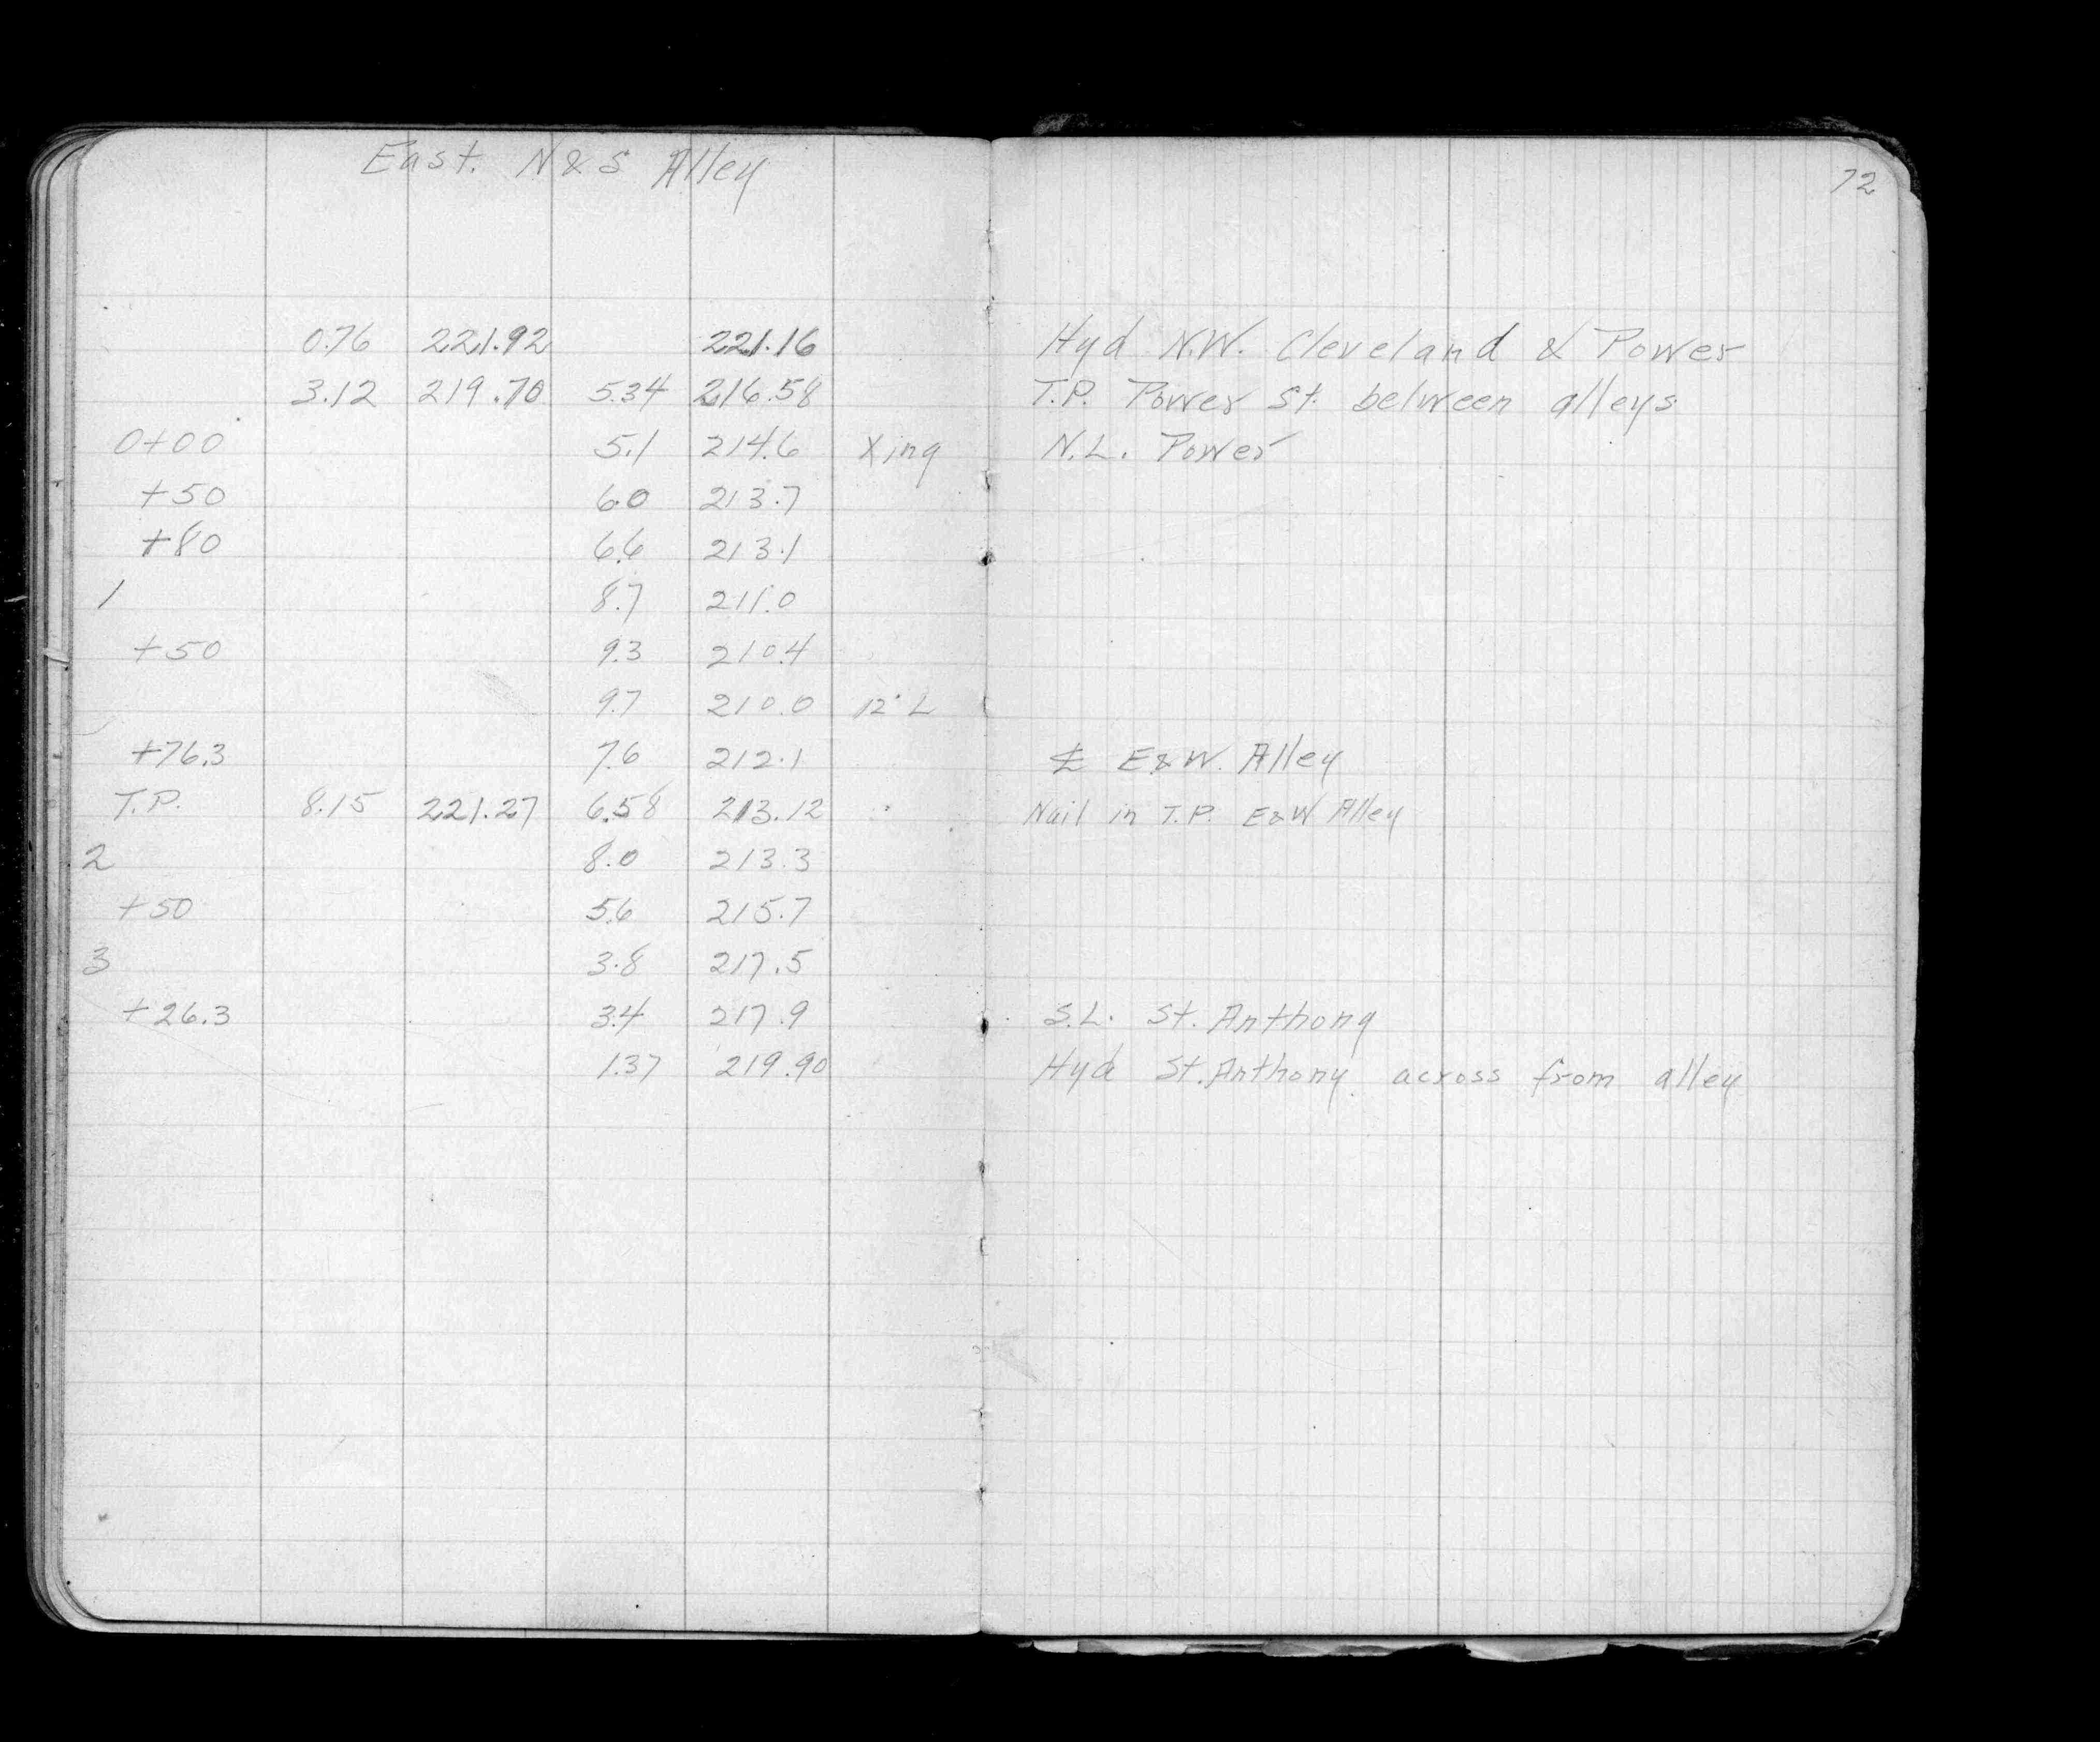 East. N & S Alley
72
0.76 221.92 221.16 Hyd N.W. Cleveland & Power
3.12 219.70 5.34 216.58 T.P. Power St. between alleys
0+00 5.1 214.6 Xing N.L. Power
+50 6.0 213.7
+80 6.6 213.1
1 8.7 211.0
+50 9.3 210.4
9.7 210.0 12' L
+76.3 7.6 212.1 ℄ E & W. Alley
T.P. 8.15 221.27 6.58 213.12 Nail in T.P. E & W Alley
2 8.0 213.3
+50 5.6 215.7
3 3.8 217.5
+26.3 3.4 217.9 S.L. St. Anthony
1.37 219.90 Hyd St. Anthony across from alley